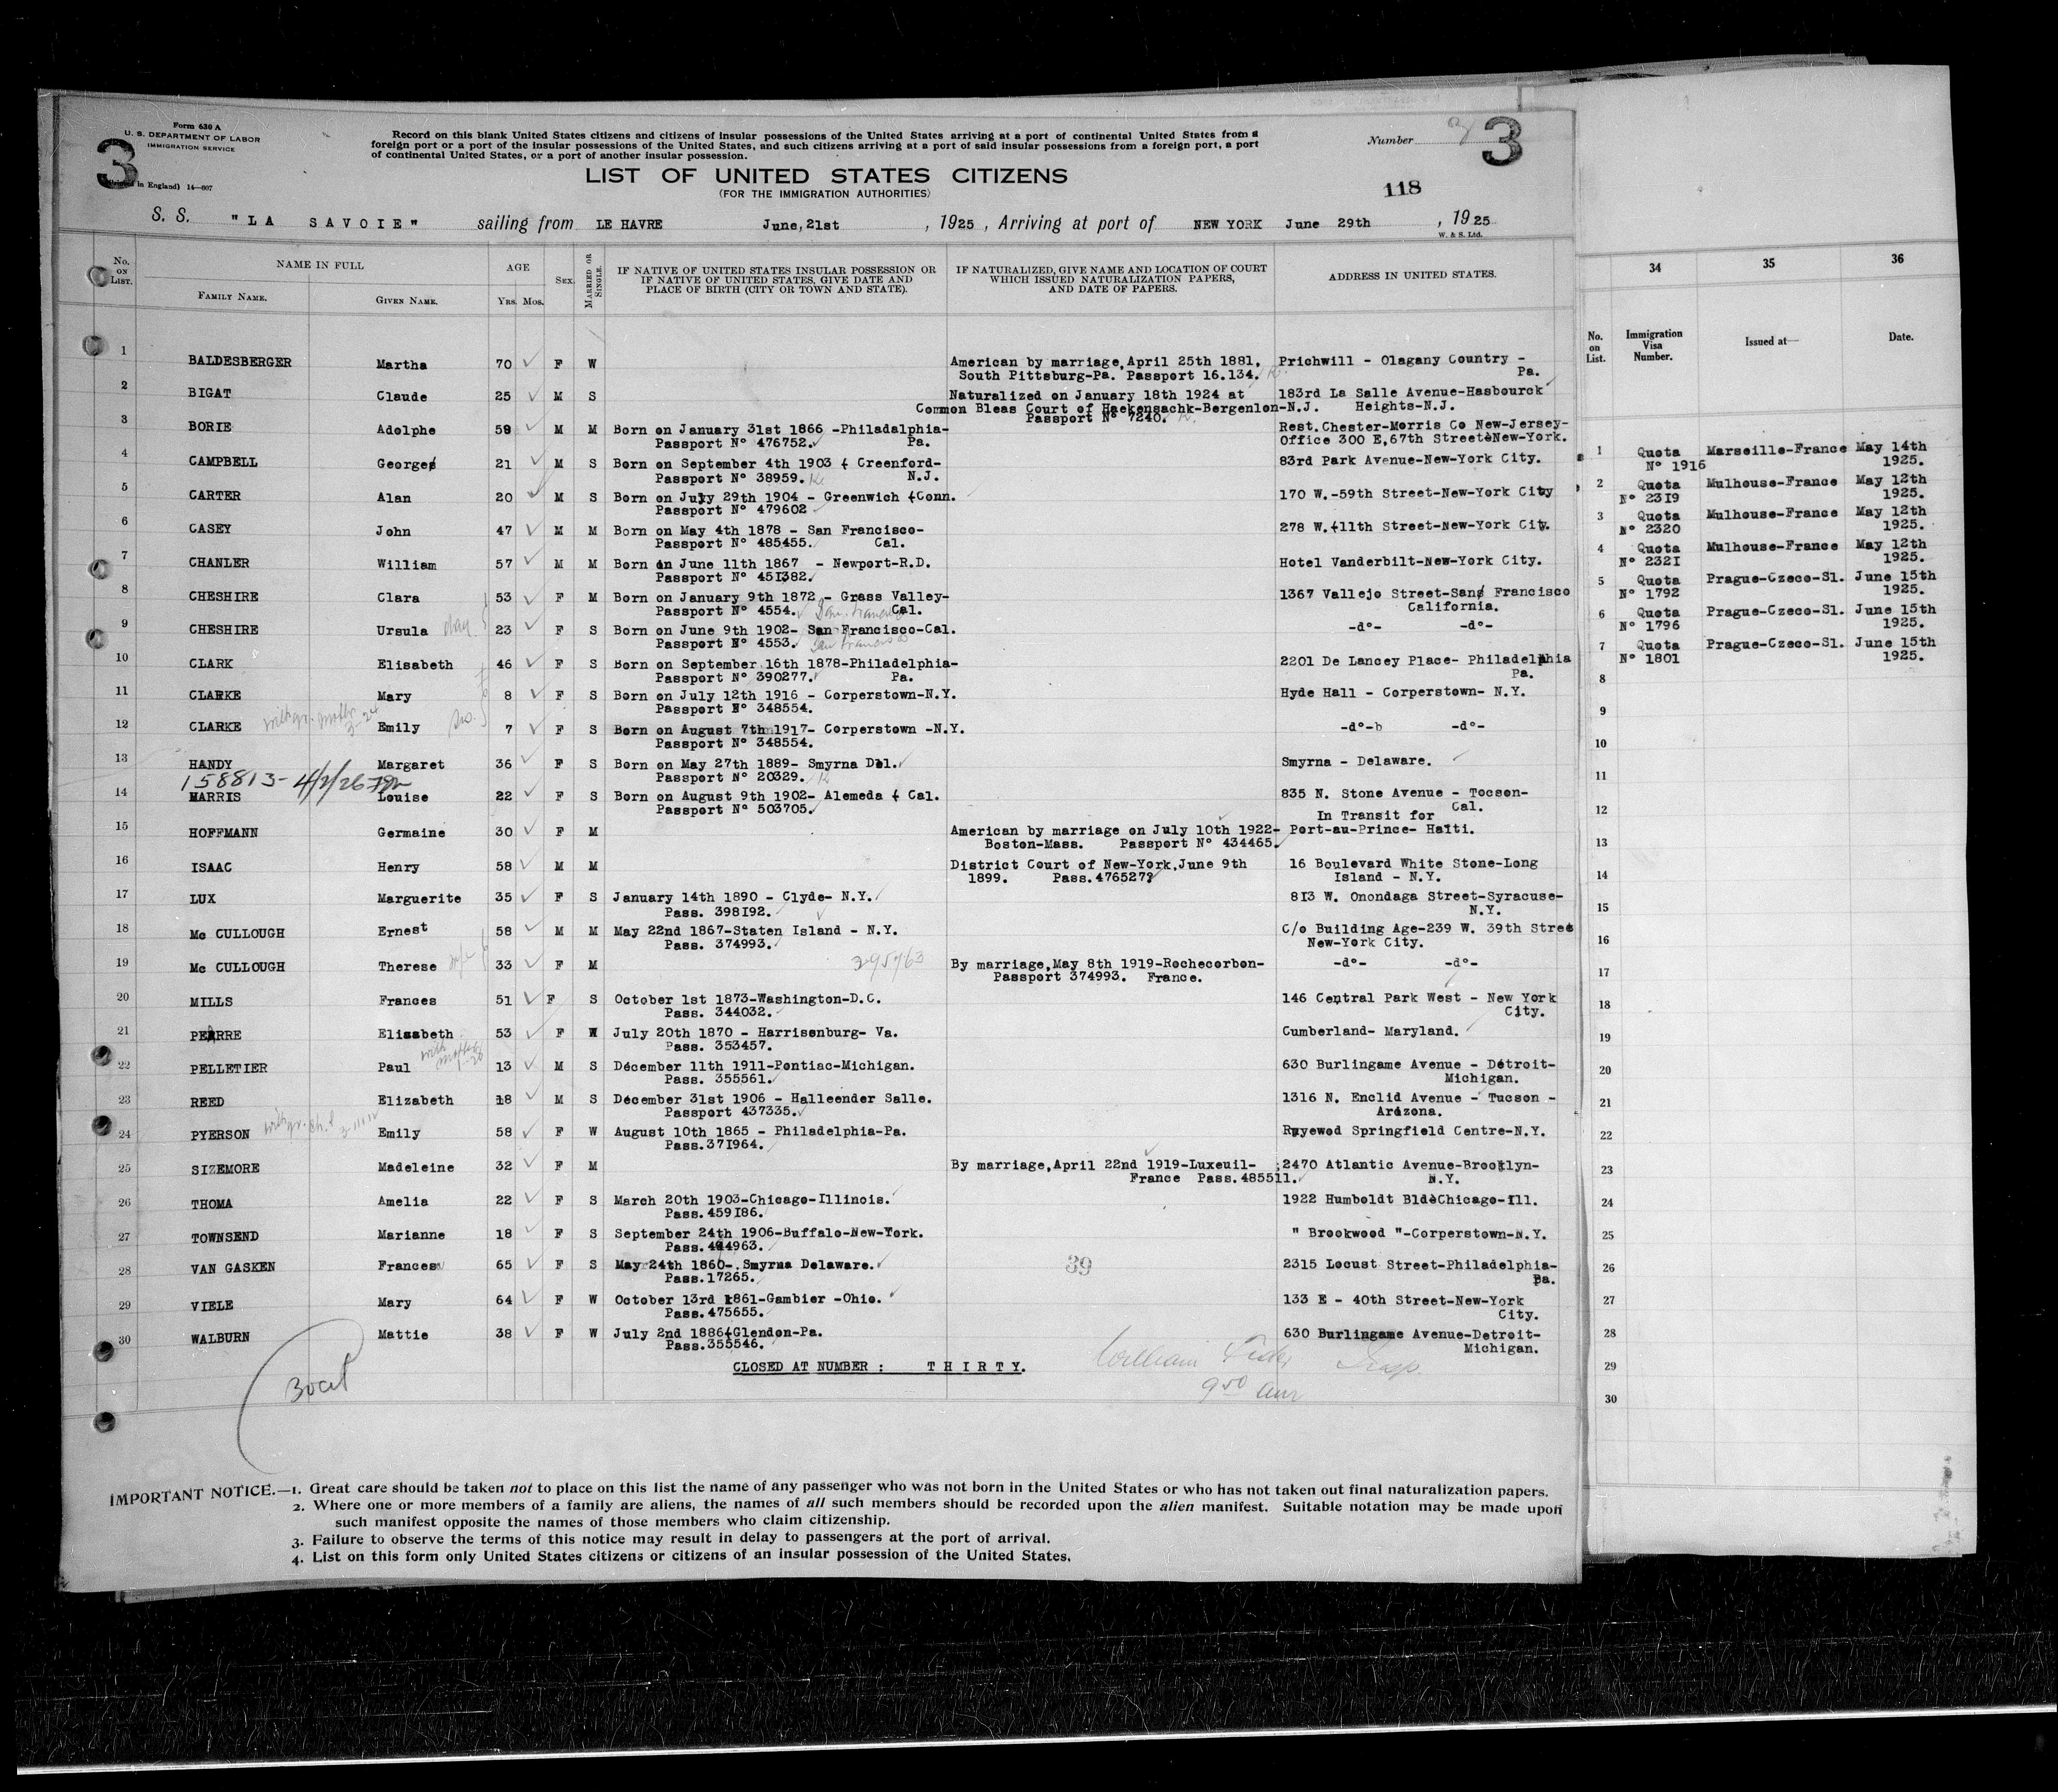 Form 630 A
U. S. DEPARTMENT OF LABOR
IMMIGRATION SERVICE
3
in England) 14—607
Record on this blank United States citizens and citizens of insular possessions of the United States arriving at a port of continental United States from a
foreign port or a port of the insular possessions of the United States, and such citizens arriving at a port of said insular possessions from a foreign port, a port
of continental United States, or a port of another insular possession.
Number
3
LIST OF UNITED STATES CITIZENS
(FOR THE IMMIGRATION AUTHORITIES)
118
S. S. "LA SAVOIE" sailing from LE HAVRE June, 21st , 1925 , Arriving at port of NEW YORK June 29th , 1925
W. & S. Ltd.
No. on List. NAME IN FULL AGE Sex. Married or Single. IF NATIVE OF UNITED STATES INSULAR POSSESSION OR IF NATIVE OF UNITED STATES, GIVE DATE AND PLACE OF BIRTH (CITY OR TOWN AND STATE). IF NATURALIZED, GIVE NAME AND LOCATION OF COURT WHICH ISSUED NATURALIZATION PAPERS, AND DATE OF PAPERS. ADDRESS IN UNITED STATES.
Family Name. Given Name. Yrs. Mos.
1 BALDESBERGER Martha 70 F W American by marriage, April 25th 1881, Prichwill - Olagany Country -
South Pittsburg-Pa. Passport 16.134. Pa.
2 BIGAT Claude 25 M S Naturalized on January 18th 1924 at 183rd La Salle Avenue-Hasbourck
Common Bleas Court of Haekensachk-Bergenlon-N.J. Heights-N.J.
Passport N° 7240.
3 BORIE Adolphe 59 M M Born on January 31st 1866 -Philadalphia- Rest.Chester-Morris Co New-Jersey-
Passport N° 476752. Pa. Office 300 E,67th Street New-York.
4 CAMPBELL George 21 M S Born on September 4th 1903 Creenford- 83rd Park Avenue-New-York City.
Passport N° 38959. N.J.
5 CARTER Alan 20 M S Born on July 29th 1904 - Greenwich Conn. 170 W.-59th Street-New-York City
Passport N° 479602
6 CASEY John 47 M M Born on May 4th 1878 - San Francisco- 278 W. 11th Street-New-York City.
Passport N° 485455. Cal.
7 CHANLER William 57 M M Born in June 11th 1867 - Newport-R.D. Hotel Vanderbilt-New-York City.
Passport N° 451382.
8 CHESHIRE Clara 53 F M Born on January 9th 1872 - Grass Valley- 1367 Vallejo Street-San Francisco
Passport N° 4554. Cal. California.
9 CHESHIRE Ursula 23 F S Born on June 9th 1902- San Francisco-Cal. -d°- -d°-
Passport N° 4553. San Francisco
10 CLARK Elisabeth 46 F S Born on September 16th 1878-Philadelphia- 2201 De Lancey Place- Philadelphia
Passport N° 390277. Pa. Pa.
11 CLARKE Mary 8 F S Born on July 12th 1916 - Corperstown-N.Y. Hyde Hall - Corperstown- N.Y.
Passport N° 348554.
12 CLARKE Emily 7 F S Born on August 7th 1917- Corperstown -N.Y. -d°- -d°-
Passport N° 348554.
13 HANDY Margaret 36 F S Born on May 27th 1889- Smyrna Del. Smyrna - Delaware.
Passport N° 20329.
158813- 4/3/26
14 HARRIS Louise 22 F S Born on August 9th 1902- Alemeda Cal. 835 N. Stone Avenue - Tocson-
Passport N° 503705. Cal.
15 HOFFMANN Germaine 30 F M American by marriage on July 10th 1922- In Transit for Port-au-Prince- Haïti.
Boston-Mass. Passport N° 434465.
16 ISAAC Henry 58 M M District Court of New-York,June 9th 16 Boulevard White Stone-Long
1899. Pass.476527 Island - N.Y.
17 LUX Marguerite 35 F S January 14th 1890 - Clyde- N.Y. 813 W. Onondaga Street-Syracuse-
Pass. 398192. N.Y.
18 Mc CULLOUGH Ernest 58 M M May 22nd 1867-Staten Island - N.Y. C/o Building Age-239 W. 39th Stree
Pass. 374993. New-York City.
19 Mc CULLOUGH Therese wife 33 F M 295763 By marriage,May 8th 1919-Rochecorbon- -d°- -d°-
Passport 374993. France.
20 MILLS Frances 51 F S October 1st 1873-Washington-D.C. 146 Central Park West - New York
Pass. 344032. City.
21 PEARRE Elisabeth 53 F W July 20th 1870 - Harrisenburg- Va. Cumberland- Maryland.
Pass. 353457.
22 PELLETIER Paul 13 M S Décember 11th 1911-Pontiac-Michigan. 630 Burlingame Avenue - Détroit-
Pass. 355561. Michigan.
23 REED Elizabeth 18 M S Décember 31st 1906 - Halleender Salle. 1316 N. Enclid Avenue - Tucson -
Passport 437335. Arizona.
24 PYERSON Emily 58 F W August 10th 1865 - Philadelphia-Pa. Ryewod Springfield Centre-N.Y.
Pass.371964.
25 SIZEMORE Madeleine 32 F M By marriage,April 22nd 1919-Luxeuil- 2470 Atlantic Avenue-Brooklyn-
France Pass.485511. N.Y.
26 THOMA Amelia 22 F S March 20th 1903-Chicago-Illinois. 1922 Humboldt Bld Chicago-Ill.
Pass.459186.
27 TOWNSEND Marianne 18 F S September 24th 1906-Buffalo-New-York. " Brookwood "-Corperstown-N.Y.
Pass.444963.
28 VAN GASKEN Frances 65 F S May 24th 1860- Smyrna Delaware. 39 2315 Locust Street-Philadelphia-
Pass.17265. Pa.
29 VIELE Mary 64 F W October 13rd 1861-Gambier -Ohio. 133 E - 40th Street-New-York
Pass.475655. City.
30 WALBURN Mattie 38 F W July 2nd 1886 Glendon-Pa. 630 Burlingame Avenue-Detroit-
Pass.355546. Michigan.
CLOSED AT NUMBER : THIRTY.
William Insp.
9 50 am
IMPORTANT NOTICE.—1. Great care should be taken not to place on this list the name of any passenger who was not born in the United States or who has not taken out final naturalization papers.
2. Where one or more members of a family are aliens, the names of all such members should be recorded upon the alien manifest. Suitable notation may be made upon
such manifest opposite the names of those members who claim citizenship.
3. Failure to observe the terms of this notice may result in delay to passengers at the port of arrival.
4. List on this form only United States citizens or citizens of an insular possession of the United States.
34 35 36
No. on List. Immigration Visa Number. Issued at— Date.
1 Quota Marseille-France May 14th
N° 1916 1925.
2 Quota Mulhouse-France May 12th
N° 2319 1925.
3 Quota Mulhouse-France May 12th
N° 2320 1925.
4 Quota Mulhouse-France May 12th
N° 2321 1925.
5 Quota Prague-Czeco-Sl. June 15th
N° 1792 1925.
6 Quota Prague-Czeco-Sl. June 15th
N° 1796 1925.
7 Quota Prague-Czeco-Sl. June 15th
N° 1801 1925.
8
9
10
11
12
13
14
15
16
17
18
19
20
21
22
23
24
25
26
27
28
29
30